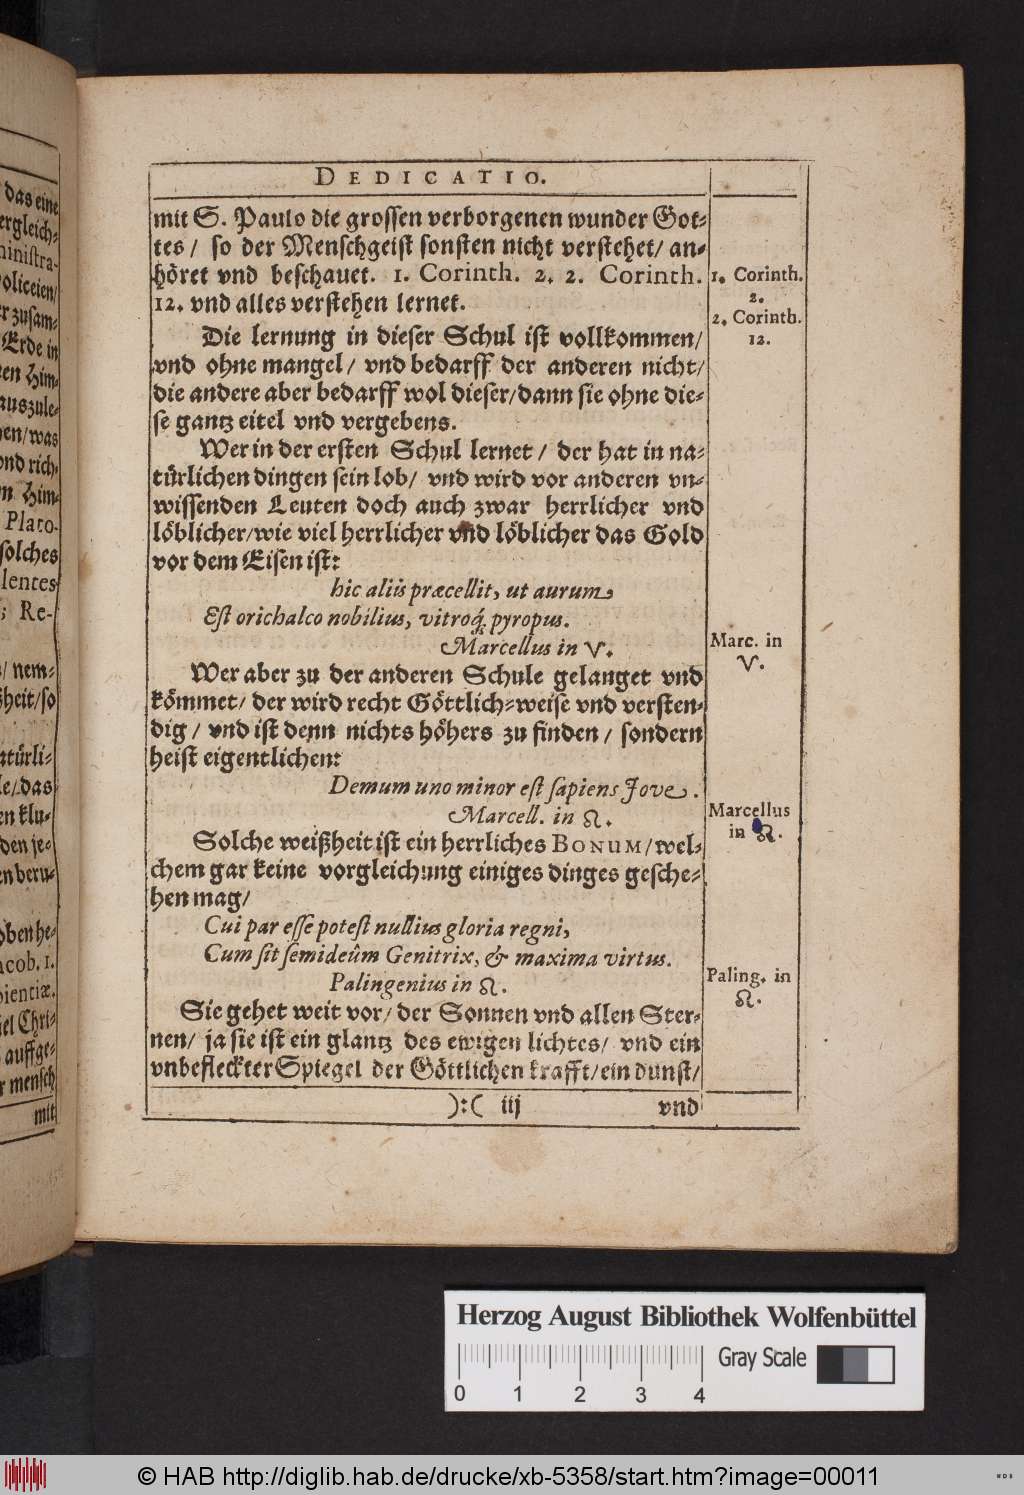 das eine
ergleich⸗
ministra-
oliceien/
er zusam⸗
Erde in
en Him⸗
auszule⸗
en/was
vnd rich⸗
n Him⸗
Plato-
solches
lentes
; Re-
/ nem⸗
heit/so
atürli⸗
le/das
en klu⸗
den je⸗
en beru⸗
oben he⸗
acob. 1.
pientiæ.
iel Chri⸗
auffge⸗
r mensch
mit
DEDICATIO.
mit S. Paulo die grossen verborgenen wunder Got⸗
tes/ so der Menschgeist sonsten nicht verstehet/ an⸗
höret vnd beschauet. 1. Corinth. 2. 2. Corinth.
12. vnd alles verstehen lernet.
1. Corinth.
2.
2. Corinth.
12.
Die lernung in dieser Schul ist vollkommen/
vnd ohne mangel/ vnd bedarff der anderen nicht/
die andere aber bedarff wol dieser/dann sie ohne die⸗
se gantz eitel vnd vergebens.
Wer in der ersten Schul lernet/ der hat in na⸗
türlichen dingen sein lob/ vnd wird vor anderen vn⸗
wissenden Leuten doch auch zwar herrlicher vnd
löblicher/wie viel herrlicher vnd löblicher das Gold
vor dem Eisen ist:
hic aliis præcellit, ut aurum
Est orichalco nobilius, vitroq́; pyropus.
Marcellus in ♈.
Marc. in
♈.
Wer aber zu der anderen Schule gelanget vnd
kömmet/ der wird recht Göttlich⸗weise vnd versten⸗
dig/ vnd ist denn nichts höhers zu finden/ sondern
heist eigentlichen:
Demum uno minor est sapiens Jove.
Marcell. in ♌.
Marcellus
in ♌.
Solche weißheit ist ein herrliches BONUM/wel⸗
chem gar keine vorgleichung einiges dinges gesche⸗
hen mag/
Cui par esse potest nullius gloria regni,
Cum sit semideûm Genitrix, & maxima virtus.
Palingenius in ♌.
Paling. in
♌.
Sie gehet weit vor/ der Sonnen vnd allen Ster⸗
nen/ ja sie ist ein glantz des ewigen lichtes/ vnd ein
vnbefleckter Spiegel der Göttlichen krafft/ein dunst/
):( iij vnd
Herzog August Bibliothek Wolfenbüttel
Gray Scale
0 1 2 3 4
© HAB http://diglib.hab.de/drucke/xb-5358/start.htm?image=00011